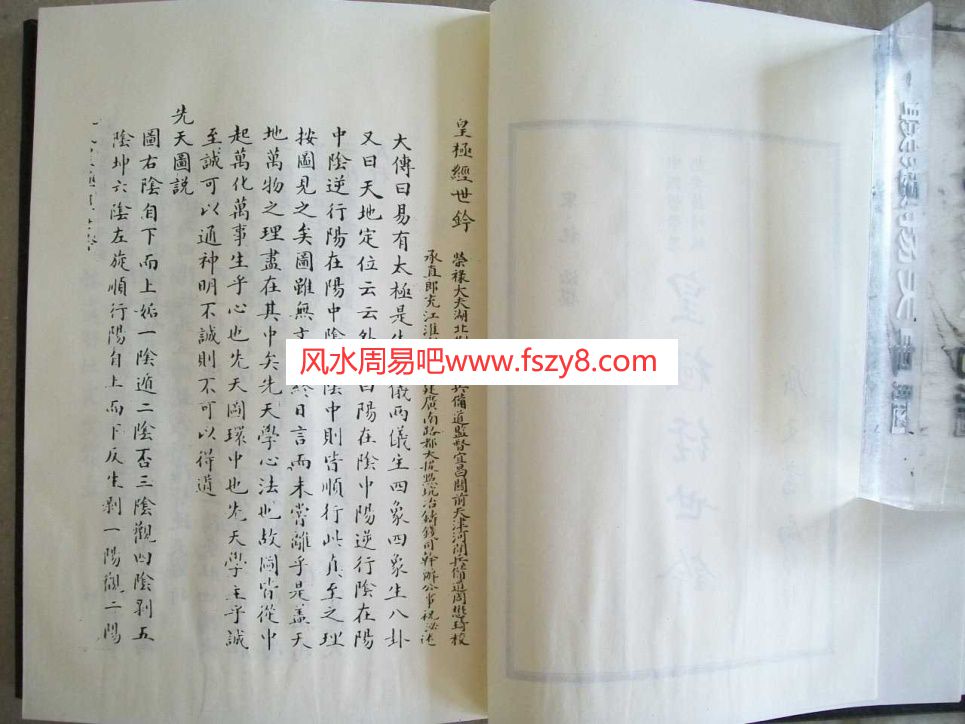 皇極經世鈐
榮祿大夫湖北備道監督宜昌關前天津河間兵備道周懋琦校
承直郎充江淮廣南路都大提點坑冶鑄錢司幹辦公事祝泌述
大傳曰易有太極是生儀兩儀生四象四象生八卦
又曰天地定位云云外曰陽在陰中陽逆行陰在陽
中陰逆行陽在陽中陰陰中則皆順行此真至之理
按圖見之矣圖雖無文終日言而未嘗離乎是蓋天
地萬物之理盡在其中矣先天學心法也故圖皆從中
起萬化萬事生乎心也先天圖環中也先天學主乎誠
至誠可以通神明不誠則不可以得道
先天圖説
圖右陰自下而上姤一陰遁二陰否三陰觀四陰剥五
陰坤六陰左旋順行陽自上而下反生剥一陽觀二陽
风水周易吧www.fszy8.com